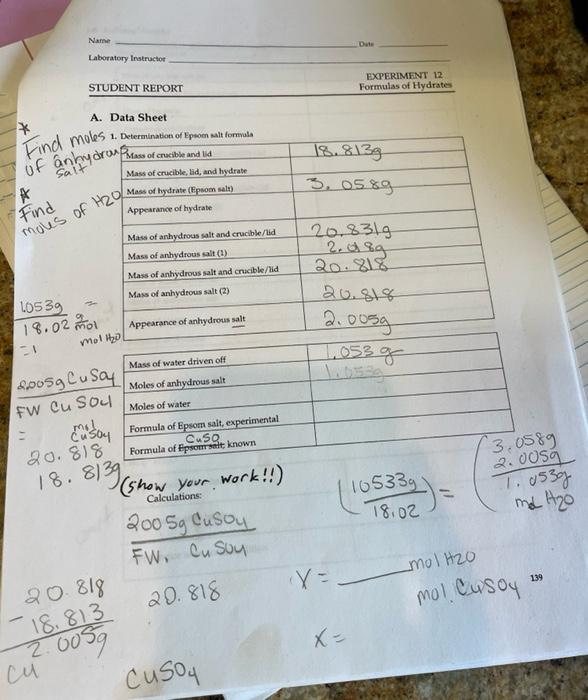 Name
Date
Laboratory Instructor
EXPERIMENT 12
STUDENT REPORT
Formulas of Hydrates
A. Data Sheet
* Find moles of anhydrous salt
* Find moles of H2O
1. Determination of Epsom salt formula
Mass of crucible and lid 18.813g
Mass of crucible, lid, and hydrate
Mass of hydrate (Epsom salt) 3.058g
Appearance of hydrate
Mass of anhydrous salt and crucible/lid 20.831g
Mass of anhydrous salt (1) 2.018g
Mass of anhydrous salt and crucible/lid 20.818
Mass of anhydrous salt (2) 20.818
Appearance of anhydrous salt 2.005g
1.053g =
18.02 g/mol
=1 mol H2O
Mass of water driven off 1.053g
Moles of anhydrous salt 1.053g
Moles of water
Formula of Epsom salt, experimental
CuSO
Formula of Epsom salt, known
2.005g CuSO4
FW CuSO4
= mol CuSO4
20.818
18.813g
(show your work!!)
Calculations:
2005g CuSO4
FW. CuSO4
(10533g
18.02) =
(3.058g
2.005g
1.053g
mol H2O
20.818
-18.813
2.005g
Cu
20.818
CuSO4
Y = ___ mol H2O
mol. CuSO4
139
X =